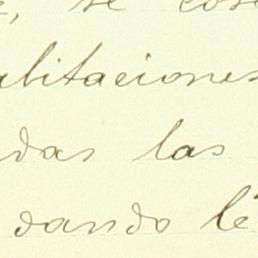 , se cose
abitaciones
das las
dando lé